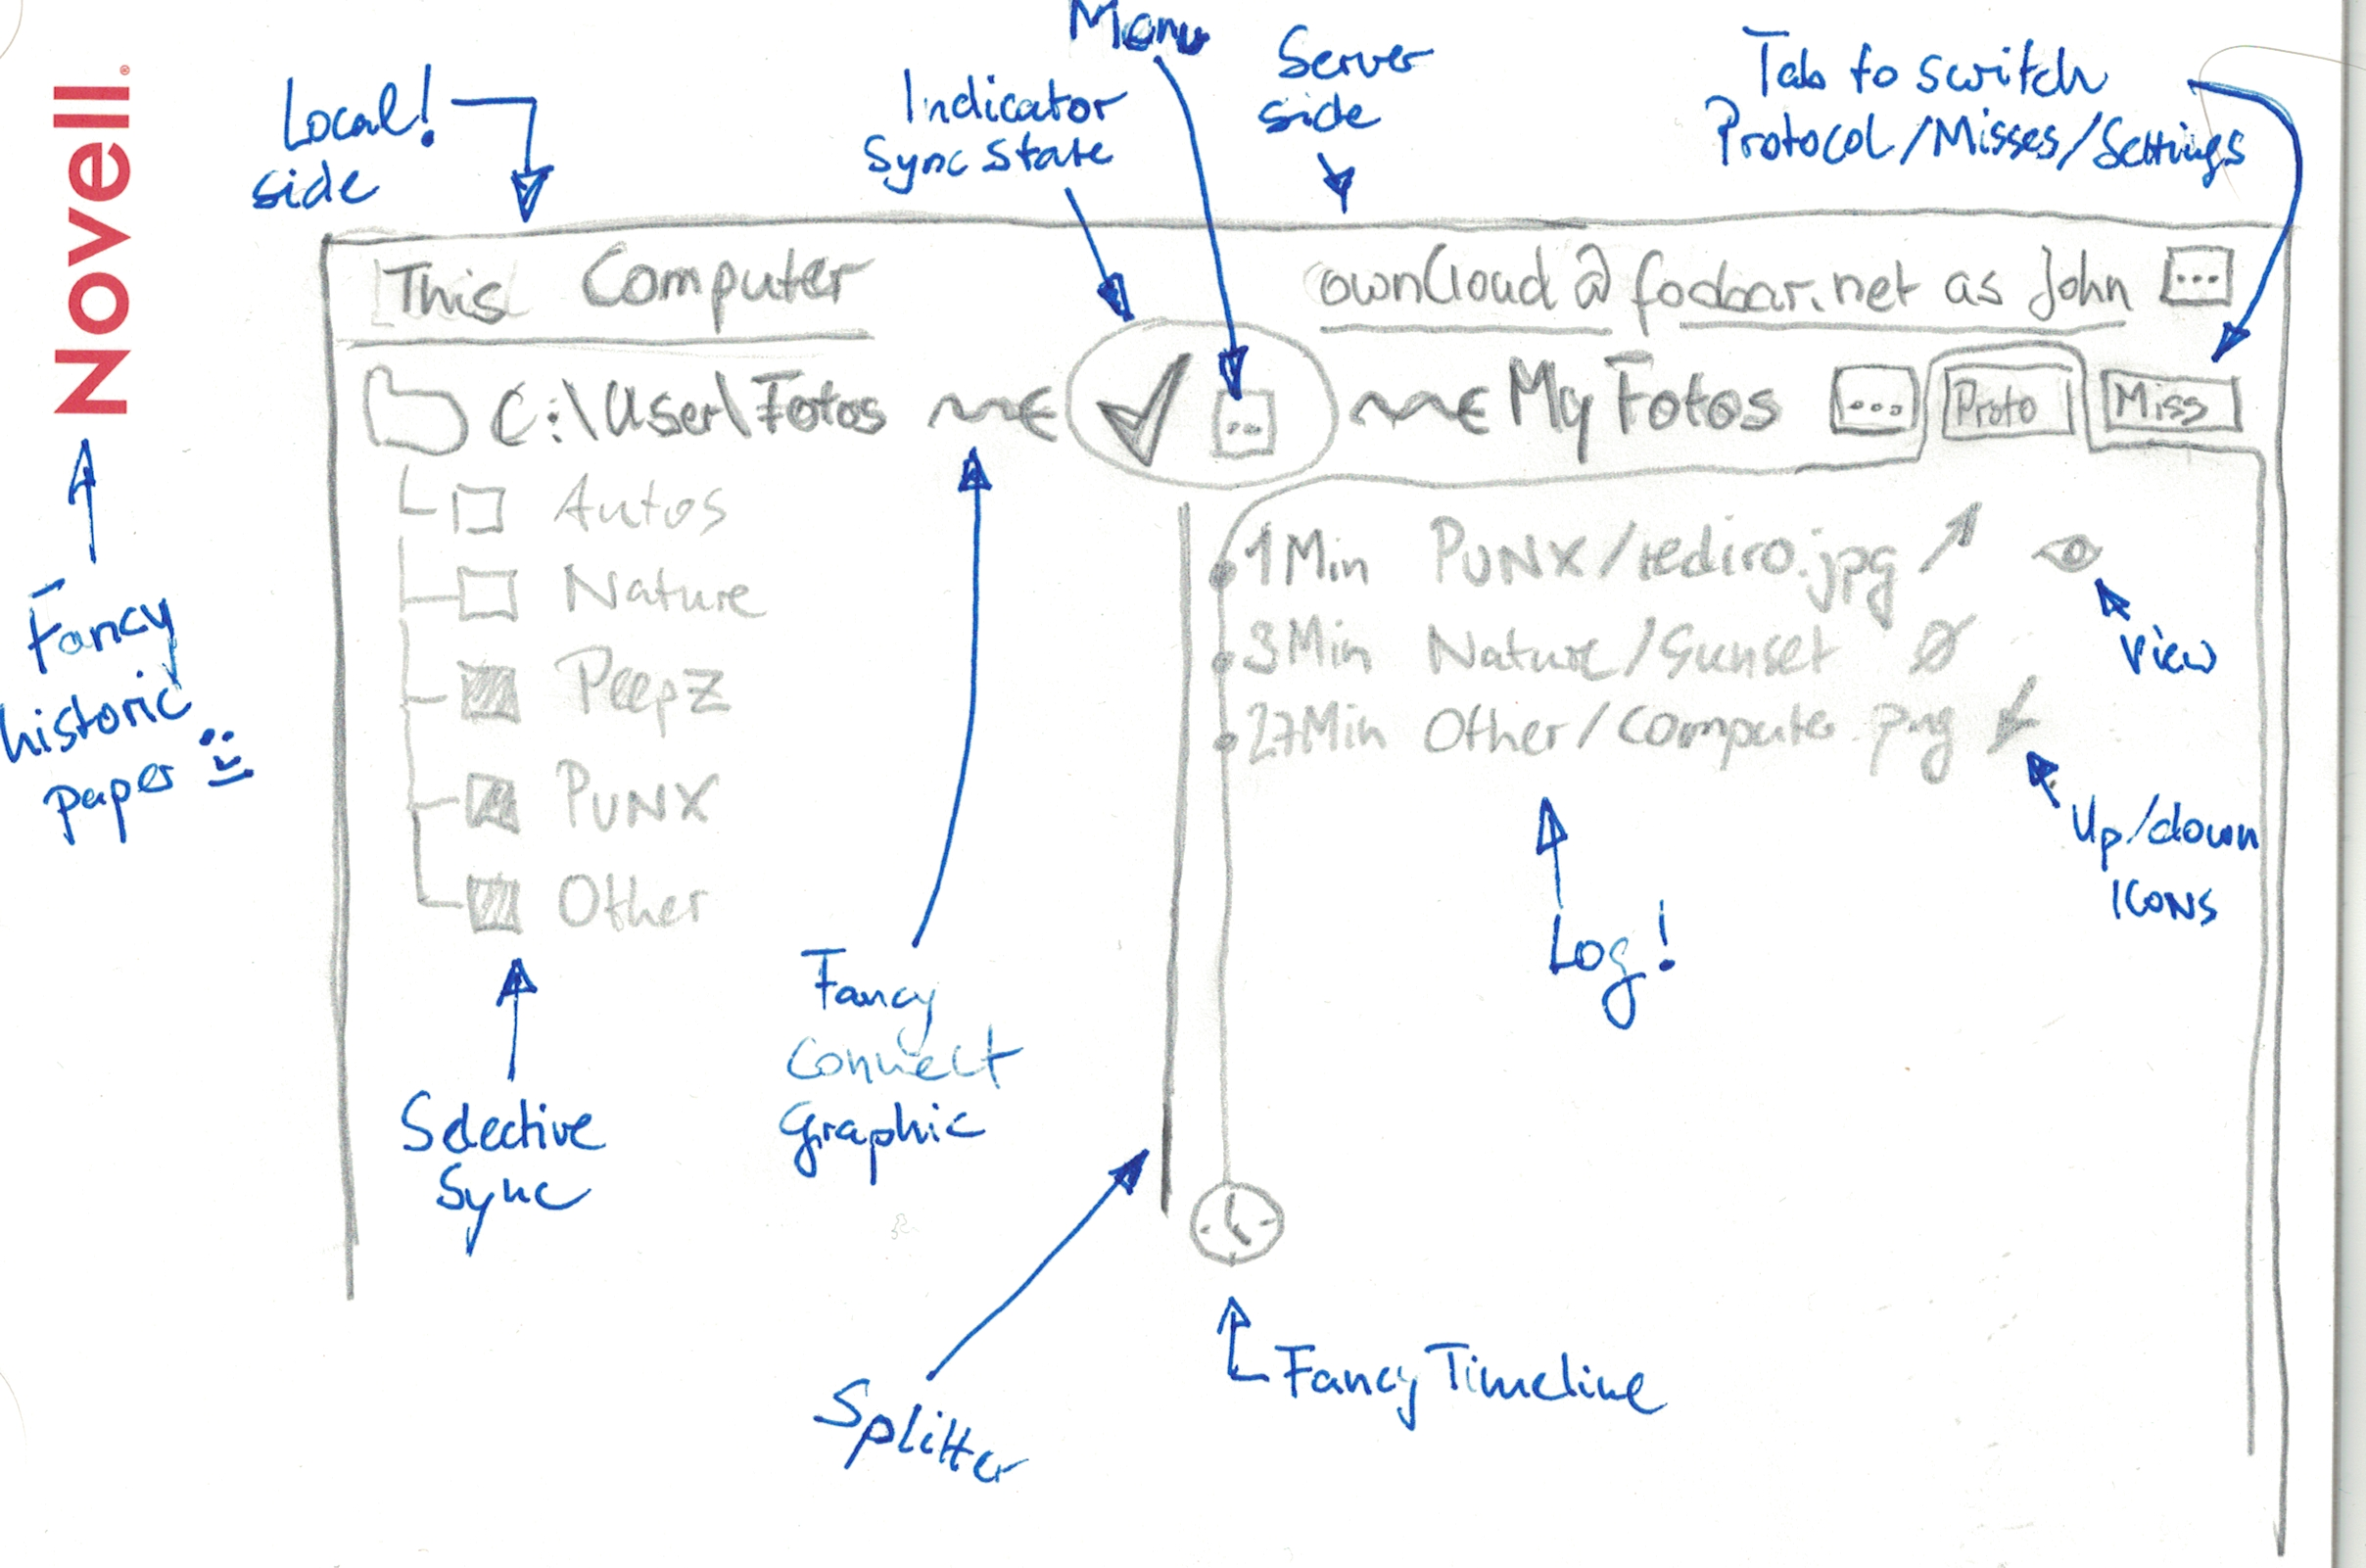 Novell.
Menu
Local!
side
Indicator
Sync State
Server
side
Tab to switch
Protocol/Misses/Settings
This Computer
ownCloud @ foobar.net as John ...
C:\User\Fotos
...
My Fotos
...
Proto
Miss
Autos
Nature
PeepZ
PUNX
Other
1Min PUNX/tediro.jpg
3Min Nature/Sunset
27Min Other/Computer.png
view
Up/down
ICONS
Log!
Fancy
historic
paper
Selective
Sync
Fancy
Connect
Graphic
Splitter
Fancy Timeline